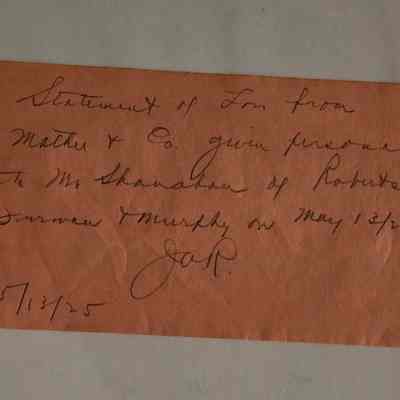 Statement of Loss from
Mather & Co. given persona
to Mr Shanahan of Roberts
& Murphy on May 13/2
JAR.
5/13/25